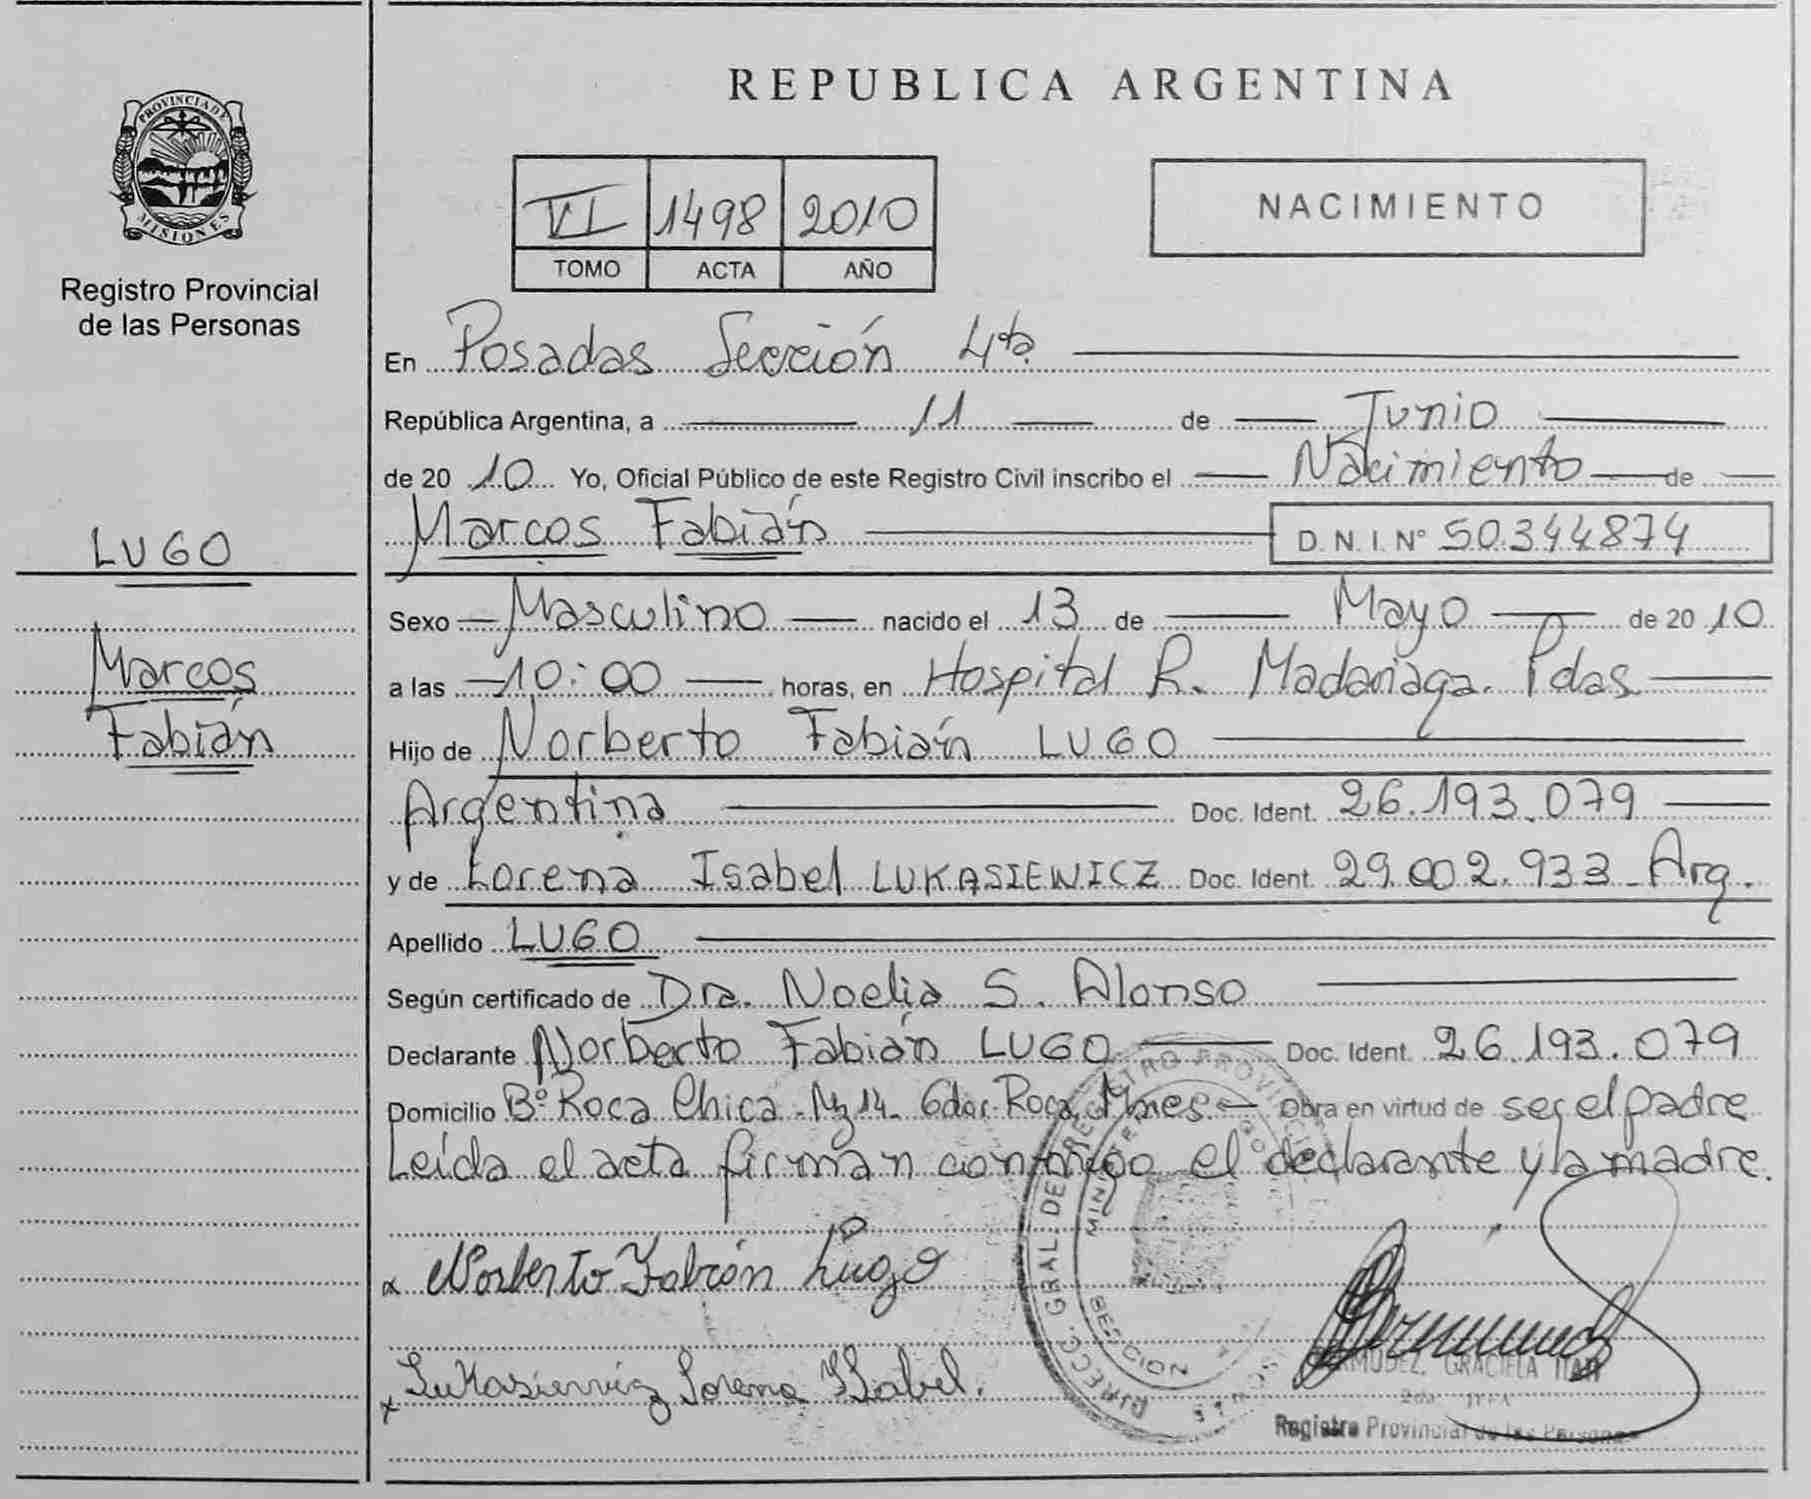 PROVINCIA DE
MISIONES
Registro Provincial
de las Personas
LUGO
Marcos
Fabián
REPUBLICA ARGENTINA
VI 1498 2010
TOMO ACTA AÑO
NACIMIENTO
En Posadas Sección 4ta.
República Argentina, a 11 de Junio
de 20 10 Yo, Oficial Público de este Registro Civil inscribo el Nacimiento de
Marcos Fabián D.N.I. N° 50.344874
Sexo Masculino nacido el 13 de Mayo de 20 10
a las 10:00 horas, en Hospital R. Madariaga. Pdas.
Hijo de Norberto Fabián LUGO
Argentina Doc. Ident. 26.193.079
y de Lorena Isabel LUKASIEWICZ Doc. Ident. 29.002.933 Arg.
Apellido LUGO
Según certificado de Dra. Noelia S. Alonso
Declarante Norberto Fabián LUGO Doc. Ident. 26.193.079
Domicilio B° Roca Chica - Mz 14 - Gdor. Roca, Mnes - Obra en virtud de ser el padre
Leída el acta firman conmigo el declarante y la madre.
x Norberto Fabián Lugo
x Lukasiewicz Lorena Isabel.
DIRECC. GRAL. DEL REGISTRO PROVINCIAL
SECCION
GRACIELA
Registro Provincial de las Personas